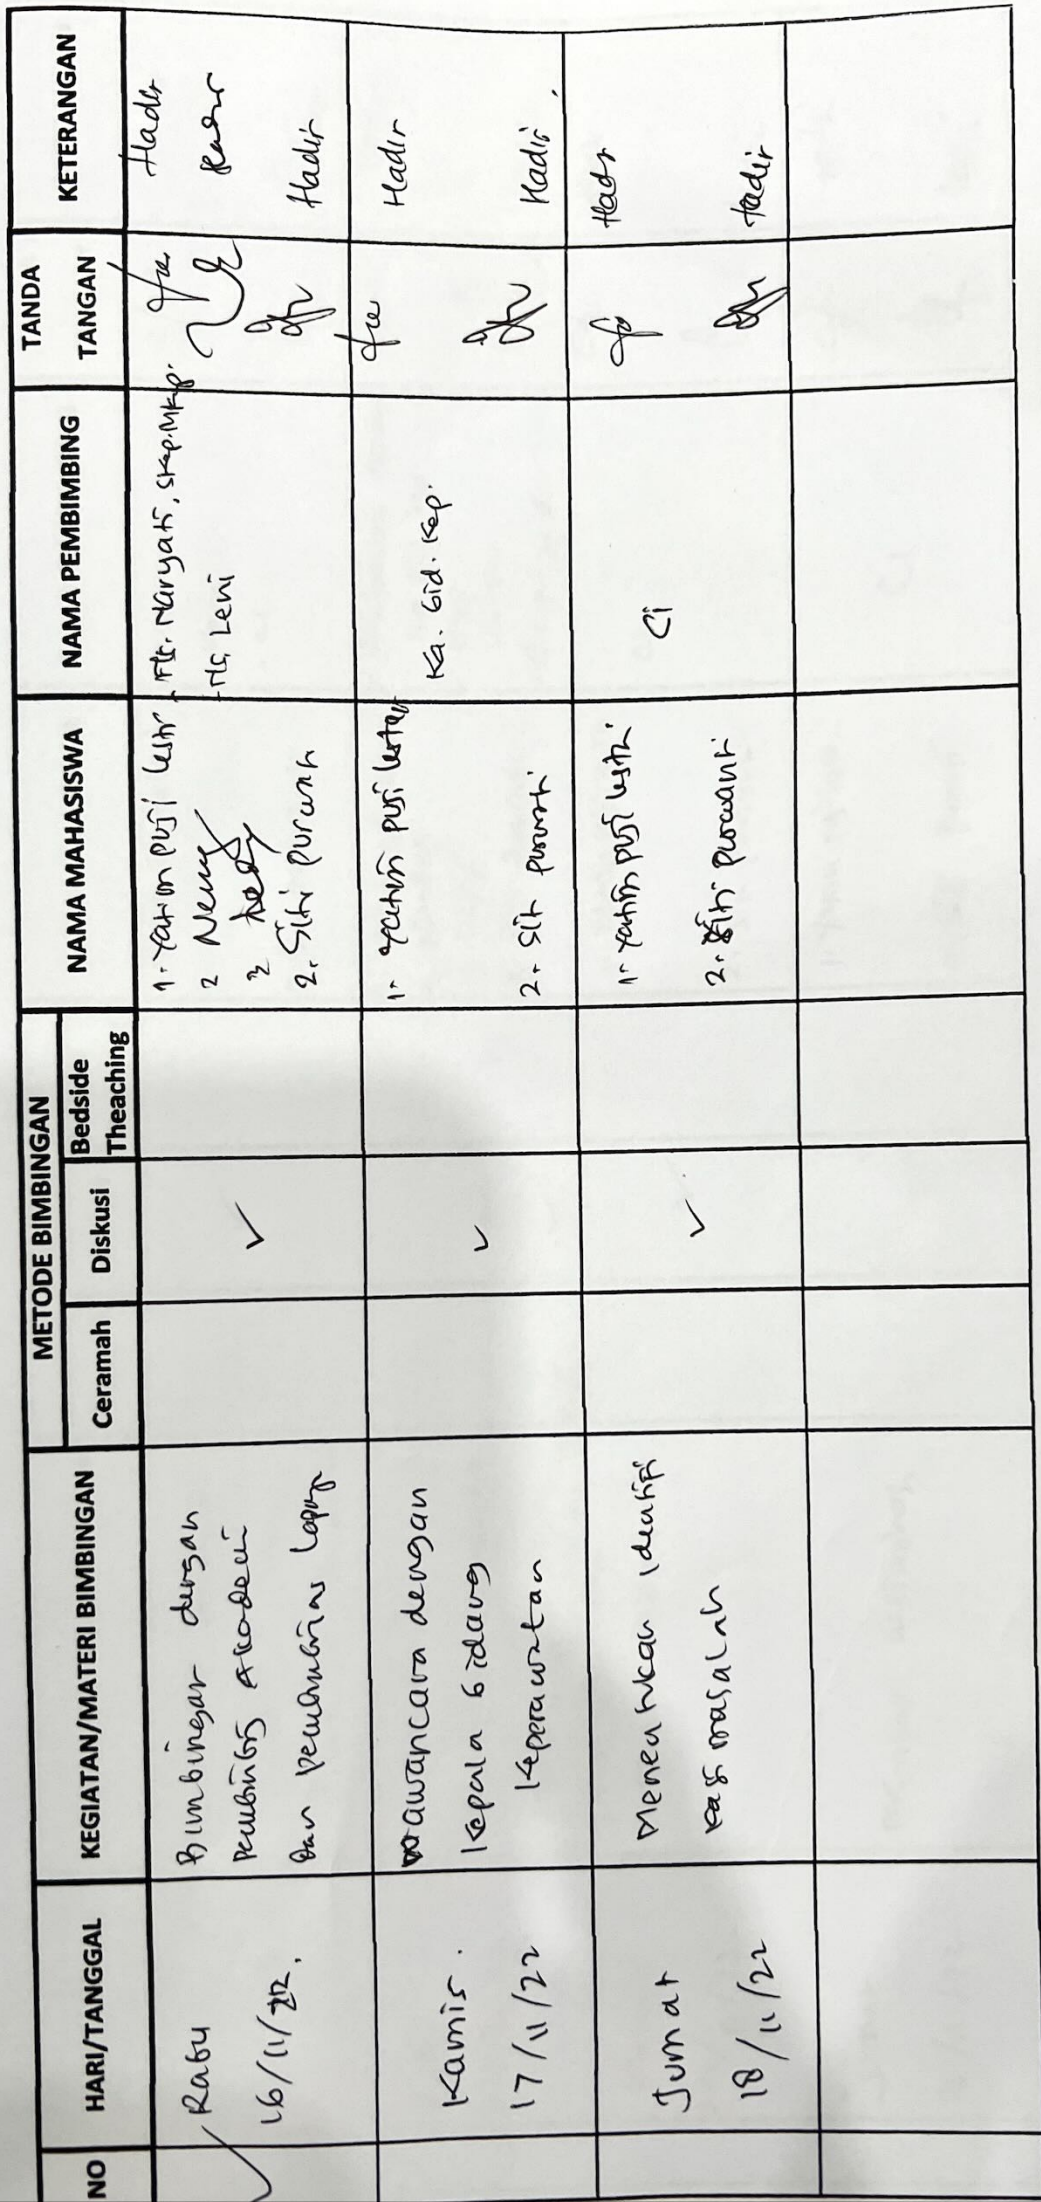 NO
HARI/TANGGAL
KEGIATAN/MATERI BIMBINGAN
METODE BIMBINGAN
Ceramah
Diskusi
Bedside
Theaching
NAMA MAHASISWA
NAMA PEMBIMBING
TANDA
TANGAN
KETERANGAN
Rabu
16/11/22.
Bimbingan dengan
Pembimbing Akademi
Dan pembimbing
✓
1. Yatim puji
2
2. Siti
Maryati, Skep. MKep.
Leni
Hadir
Hadir
Hadir
Kamis.
17/11/22
wawancara dengan
Kepala bidang
Keperawatan
✓
1. Yatim puji lestari
2. Siti
Ka. bid. Kep.
Hadir
Hadir.
Jumat
18/11/22
Menentukan identifi
kasi masalah
✓
1. Yatim puji lestri
2. Siti purwanti
Ci
Hadir
Hadir